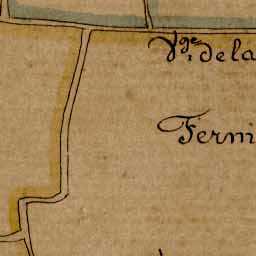 Vge. dela
Ferni